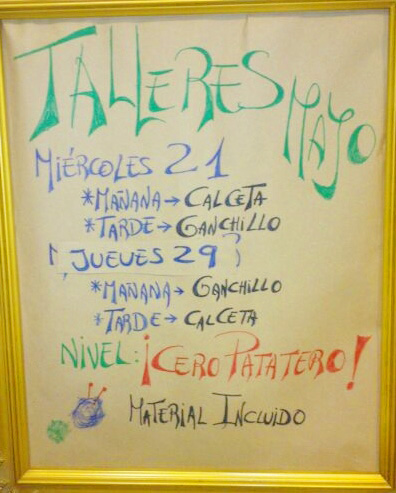 TALLERES
MAYO
MIÉRCOLES 21
*MAÑANA→ CALCETA
*TARDE→ GANCHILLO
JUEVES 29
*MAÑANA→ GANCHILLO
*TARDE→ CALCETA
NIVEL: ¡CERO PATATERO!
MATERIAL INCLUIDO